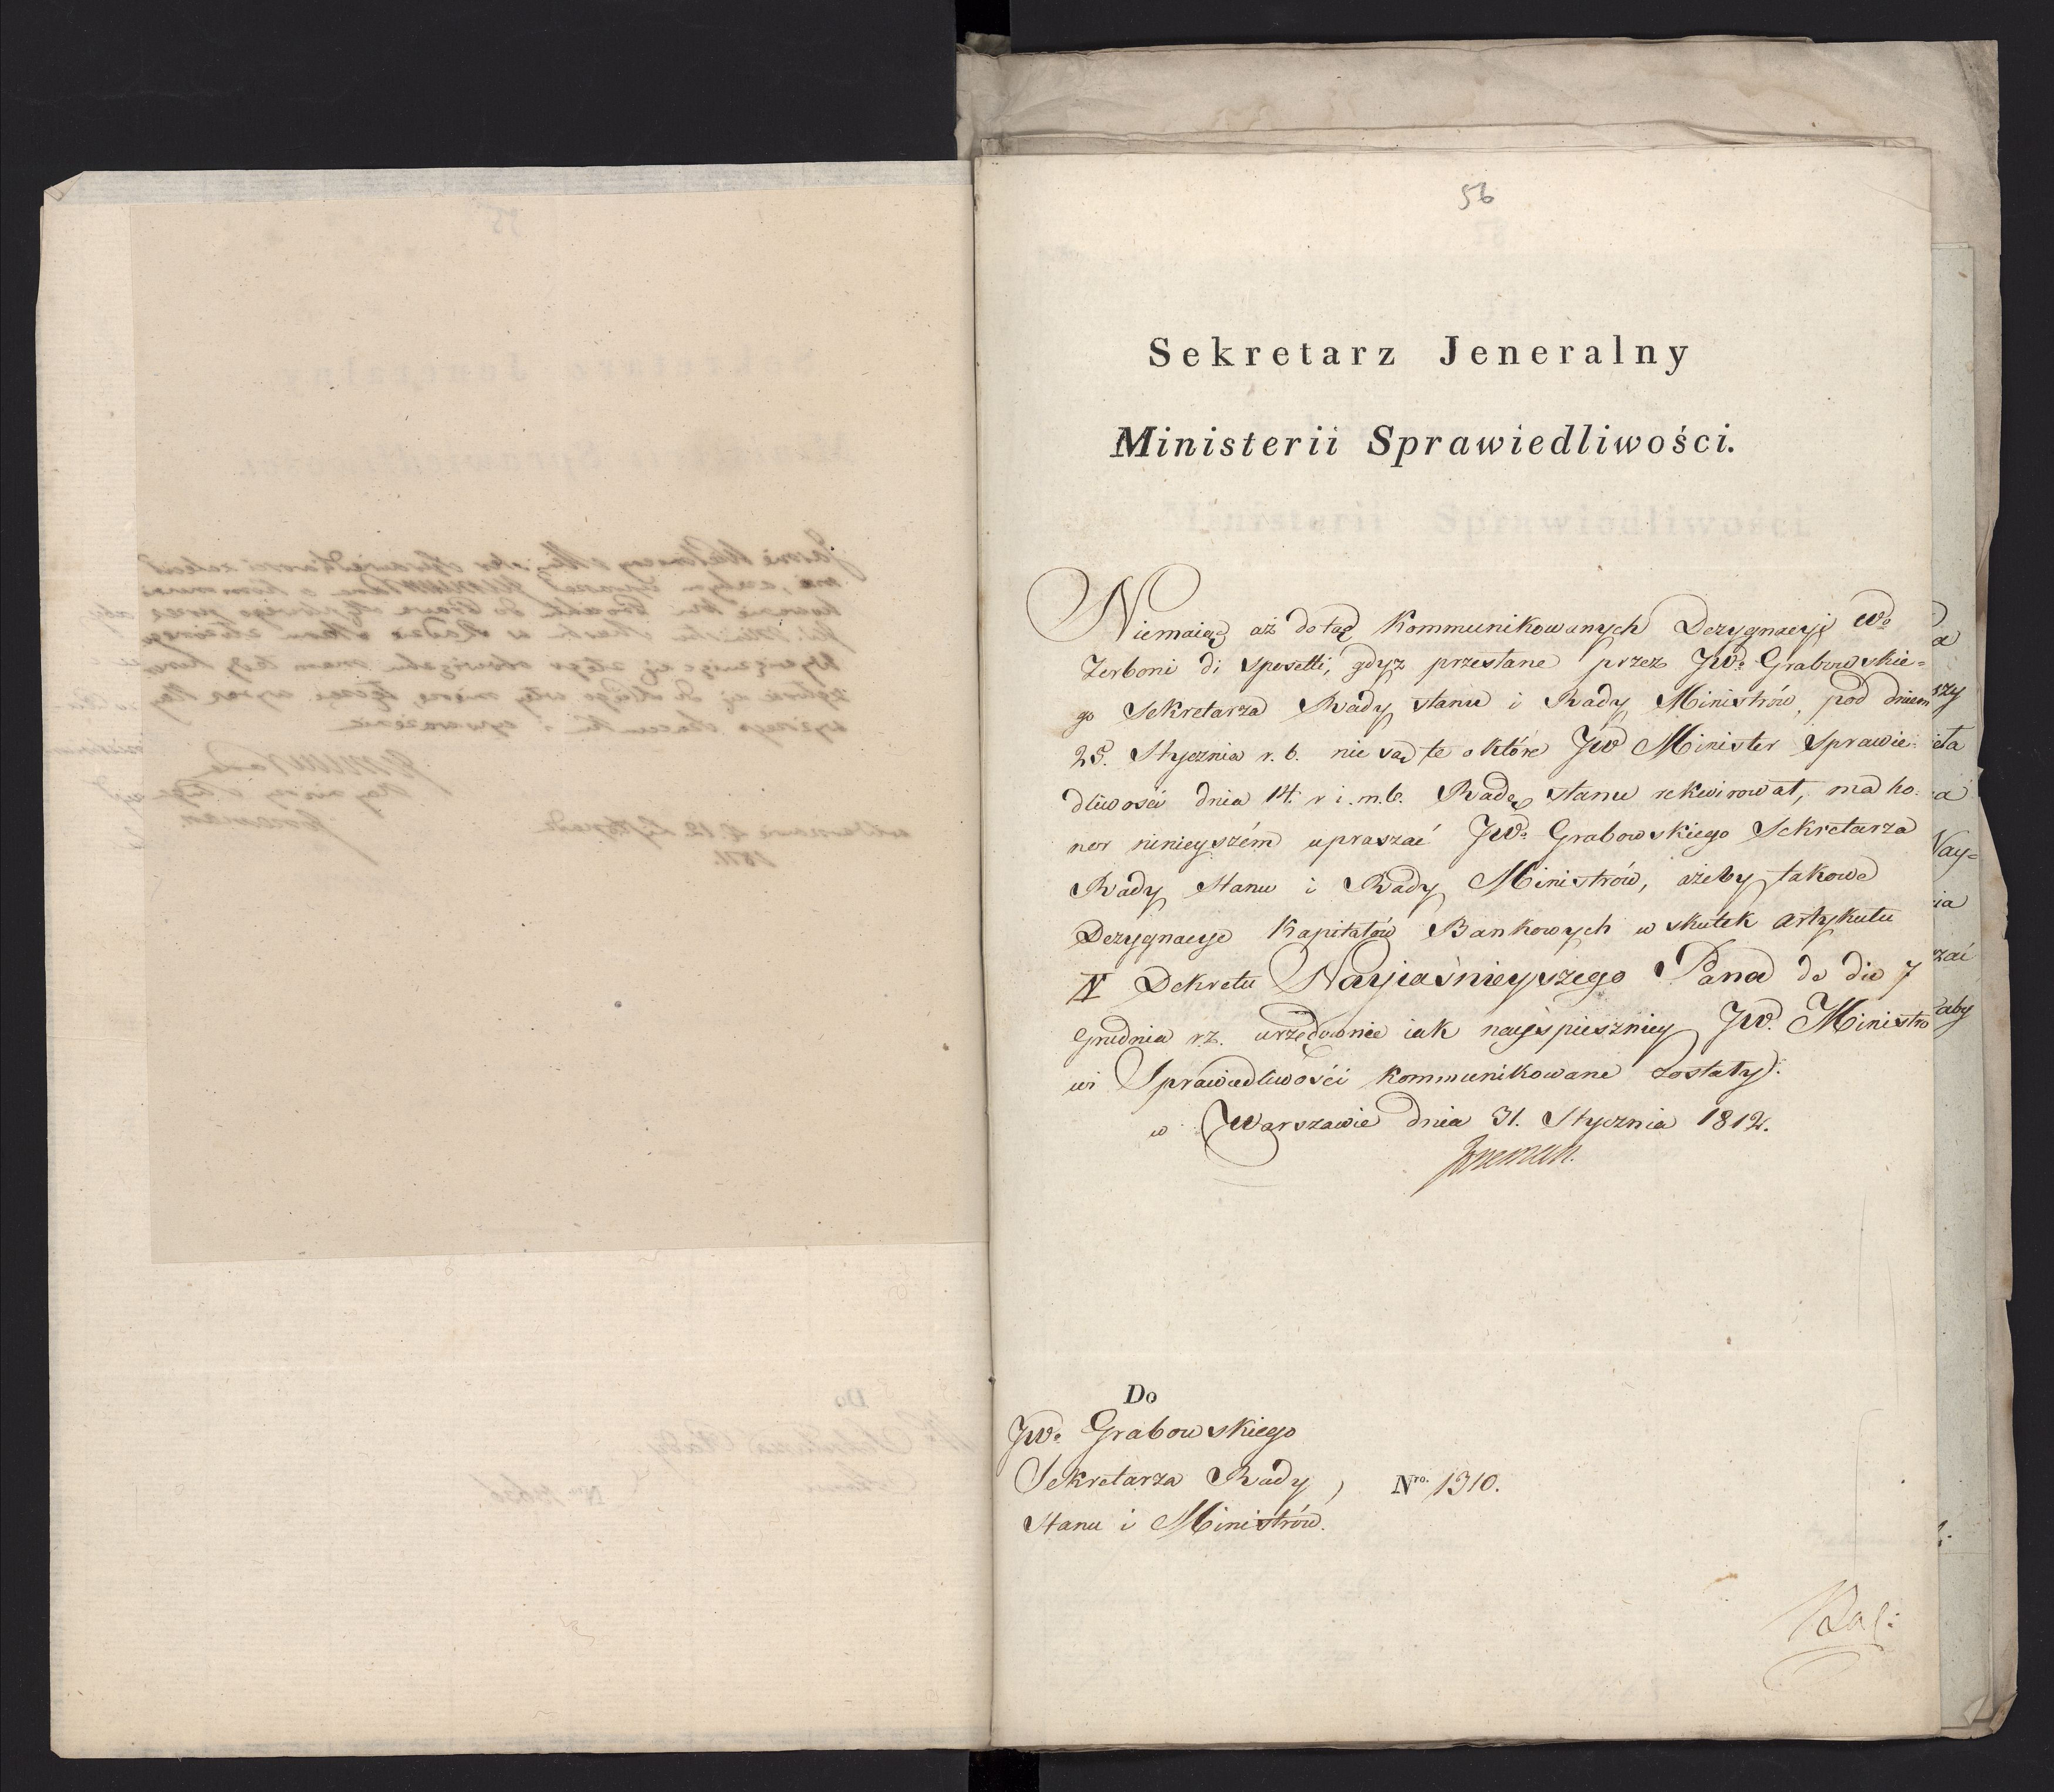 56
Sekretarz Jeneralny
Ministerii Sprawiedliwości.
Niemaiąc aż dotąd kommunikowanych Dezygnacyi Wo
Zerboni di Sposetti, gdyż przesłane przez JWo Grabowskie=
go Sekretarza Rady stanu i Rady Ministrów, pod dniem
25. Stycznia r. b. nie są te o które JW Minister Sprawie=
dliwości dnia 14. r i. m. b. Radę stanu rekwirował, ma ho=
nor ninieyszém upraszać JWo Grabowskiego Sekretarza
Rady Stanu i Rady Ministrów, ażeby takowe
Dezygnacye Kapitałów Bankowych w skutek artykułu
IV Dekretu Nayiaśnieyszego Pana de die 7
Grudnia r. z. urzędownie iak nayśpieszniey JW. Ministro
wi Sprawiedliwości kommunikowane zostały.
w Warszawie dnia 31. Stycznia 1812.
Do
JWo Grabowskiego
Sekretarza Rady
Stanu i Ministrów.
Nro. 1310.